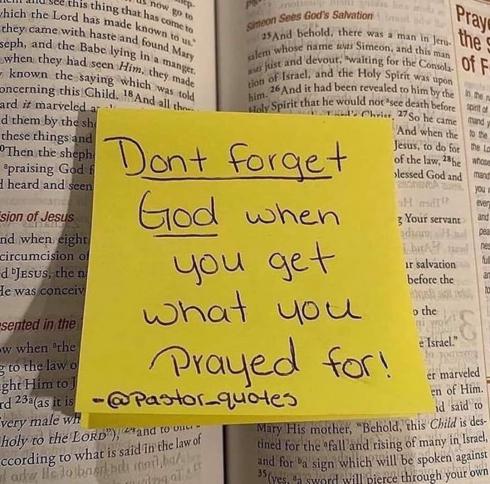 now go to
see this thing that has come to
which the Lord has made known to us."
they came with haste and found Mary
seph, and the Babe lying in a manger.
when they had seen Him, they made
known the saying which was told
oncerning this Child. 18And all
ard it marveled
d them by the
these things and
Then the
praising God
d heard and seen
sion of Jesus
nd when eight
circumcision
JESUS, the
He was
sented in the
when the
to the law
ght Him to
(as it is
very male
holy to the LORD"), and to
ccording to what is said in the law of
Dont forget
God when
you get
what you
Prayed for!
-@pastor_quotes
Simeon Sees God's Salvation
25And behold, there was a man in Jeru-
salem whose name was Simeon, and this man
was just and devout, waiting for the Consola-
tion of Israel, and the Holy Spirit was upon
him. 26And it had been revealed to him by the
Holy Spirit that he would not see death before
27So he came
And when the
Jesus, to do for
of the law, 28he
blessed God and
Your servant
salvation
before the
o the
Israel."
marveled
of Him.
said to
Mary His mother, "Behold, this Child is des-
tined for the fall and rising of many in Israel,
and for a sign which will be spoken against
35(yes, a sword will pierce through your own
Praye
the S
of F